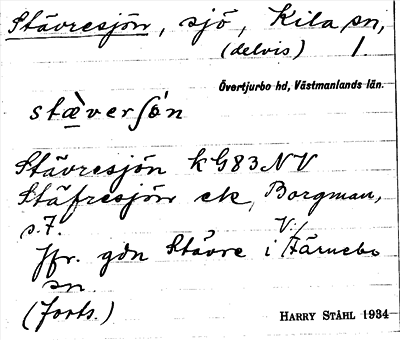 Stävresjön, sjö, Kila sn,
(delvis) 1.
Övertjurbo hd, Västmanlands län.
stæ̀verʃö́n
Stävresjön kG83NV
Stäfresjön ek, Borgman,
s.7.
Jfr. gdn Stävre i V. Färnebo
sn.
(forts.)
HARRY STÅHL 1934